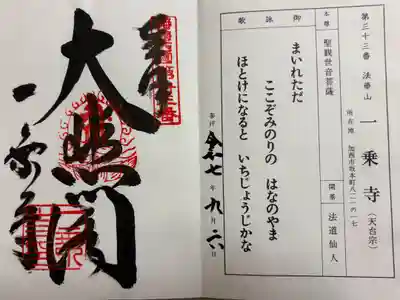 第三十三番 法華山 一乗寺 (天台宗)
所在地 加西市坂本町
本尊 聖観世音菩薩 開基 法道仙人
御詠歌
まいれただ
ここぞみのりの はなのやま
ほとけになると いちじょうじかな
奉拝 令和七年九月六日
奉拝
大悲閣
一乗寺